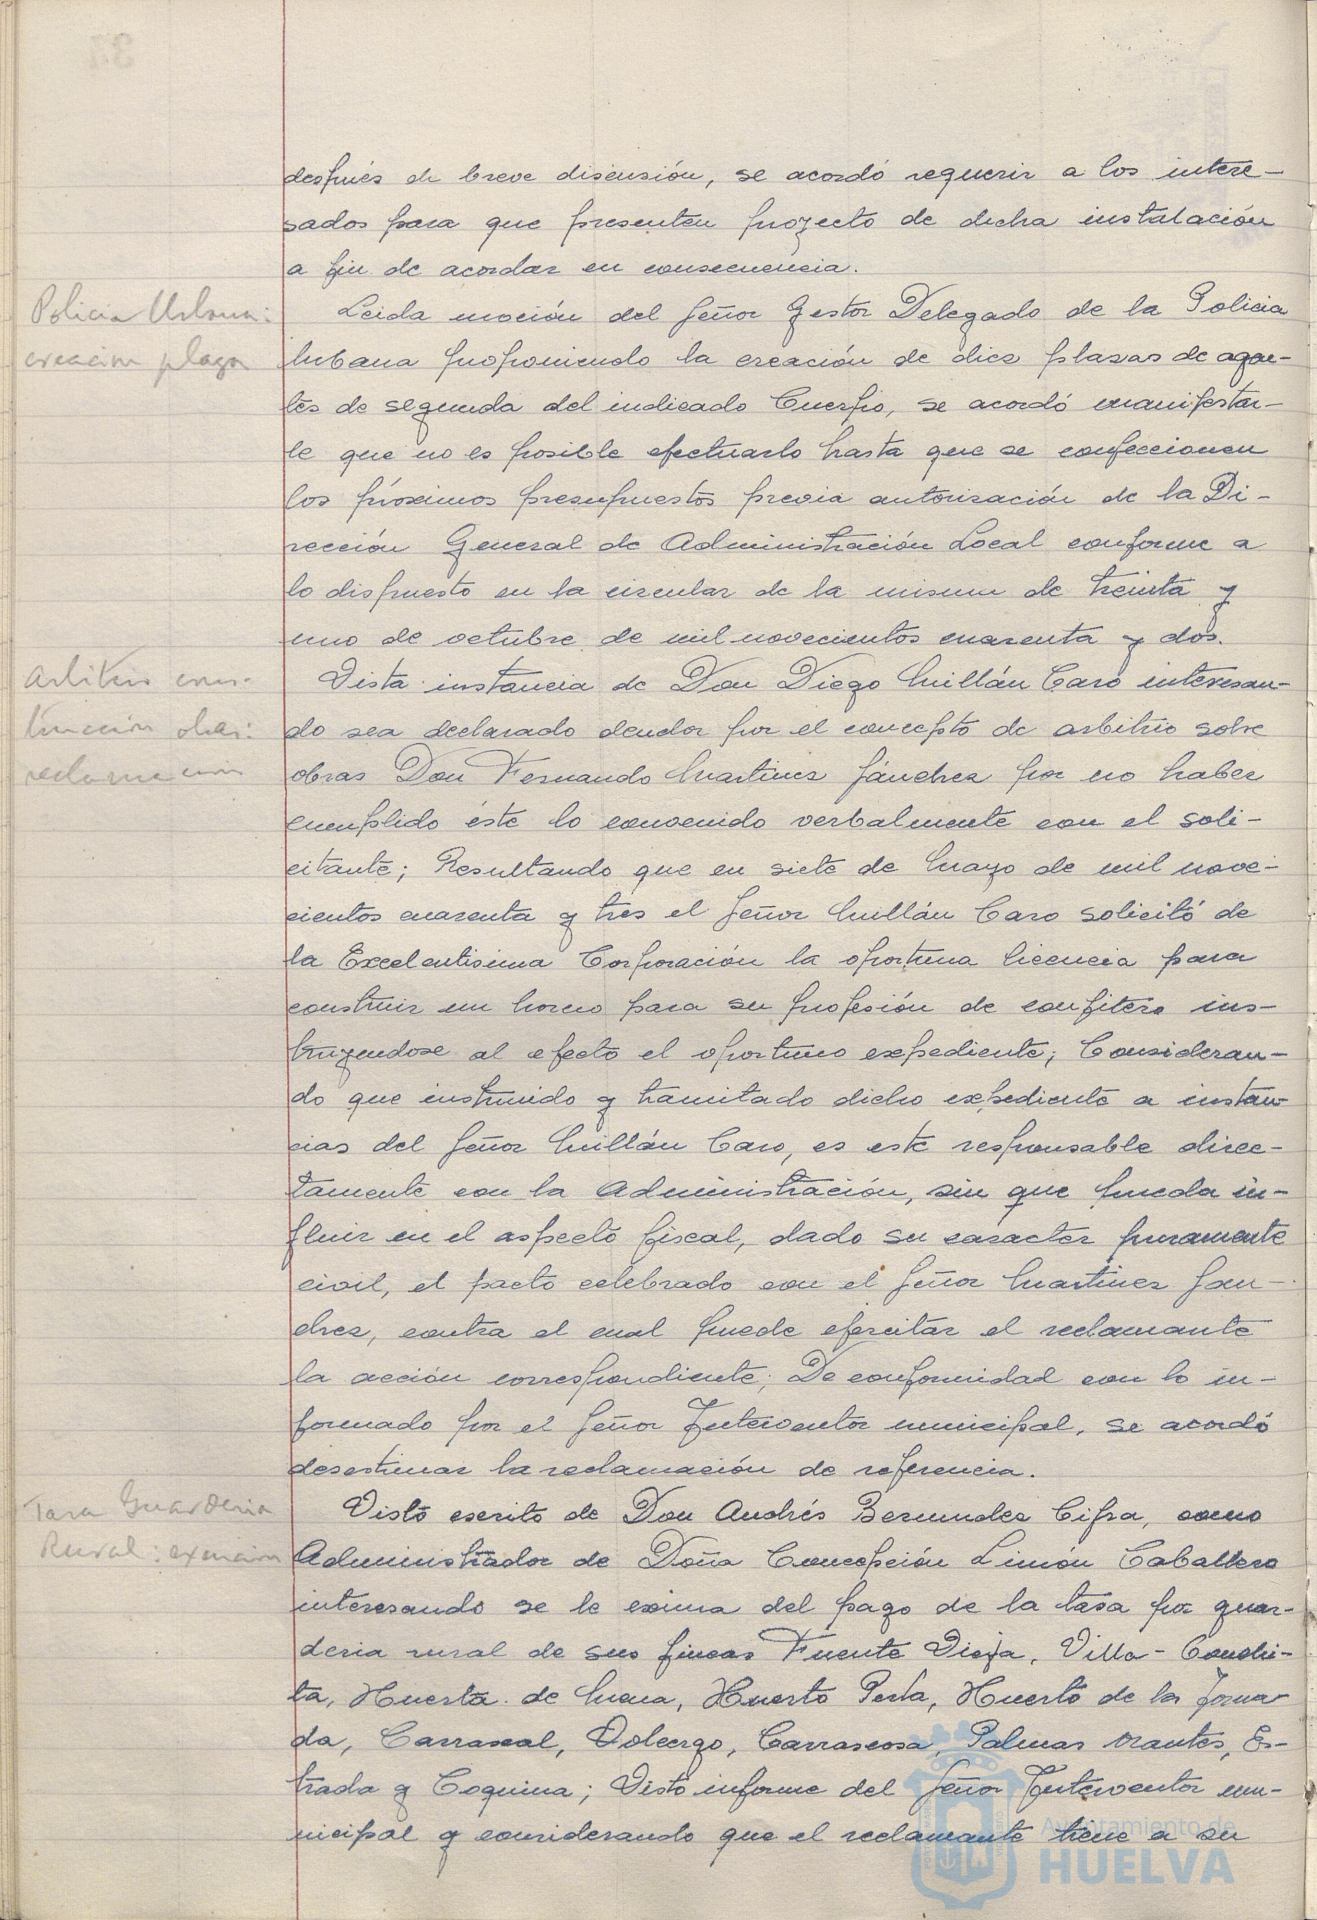 después de breve discusión, se acordó requerir a los intere-
sados para que presenten proyecto de dicha instalación
a fin de acordar en consecuencia.
Policia Urbana:
creacion plaza
Leida moción del Señor Gestor Delegado de la Policia
Urbana proponiendo la creación de diez plazas de agen-
tes de segunda del indicado Cuerpo, se acordó manifestar-
le que no es posible efectuarlo hasta que se confeccionen
los próximos presupuestos previa autorización de la Di-
rección General de Administración Local conforme a
lo dispuesto en la circular de la misma de treinta y
uno de octubre de mil novecientos cuarenta y dos.
Arbitrio cons-
trucción obras:
reclamacion
Vista instancia de Don Diego Millán Caro interesan-
do sea declarado deudor por el concepto de arbitrio sobre
obras Don Fernando Martinez Sánchez por no haber
cumplido éste lo convenido verbalmente con el soli-
citante; Resultando que en siete de Mayo de mil nove-
cientos cuarenta y tres el Señor Millán Caro solicitó de
la Excelentisima Corporación la oportuna licencia para
construir un horno para su profesión de confitero ins-
truyendose al efecto el oportuno expediente; Consideran-
do que instruido y tramitado dicho expediente a instan-
cias del Señor Millán Caro, es este responsable direc-
tamente con la Administración, sin que pueda in-
fluir en el aspecto fiscal, dado su caracter puramente
civil, el pacto celebrado con el Señor Martinez San-
chez, contra el cual puede ejercitar el reclamante
la acción correspondiente; De conformidad con lo in-
formado por el Señor Interventor municipal, se acordó
desestimar la reclamación de referencia.
Tasa Guarderia
Rural: exencion
Visto escrito de Don Andrés Bermudez Cifra, como
Administrador de Doña Concepción Limón Caballero
interesando se le exima del pago de la tasa por guar-
deria rural de sus fincas Fuente Vieja, Villa-Conchi-
ta, Huerta de Mena, Huerto Perla, Huerto de la Joma-
da, Carrascal, Carrascosa, Palmas Orantes, Es-
trada y Coquina; Visto informe del Señor Interventor mu-
nicipal y considerando que el reclamante tiene a su
Ayuntamiento de
HUELVA